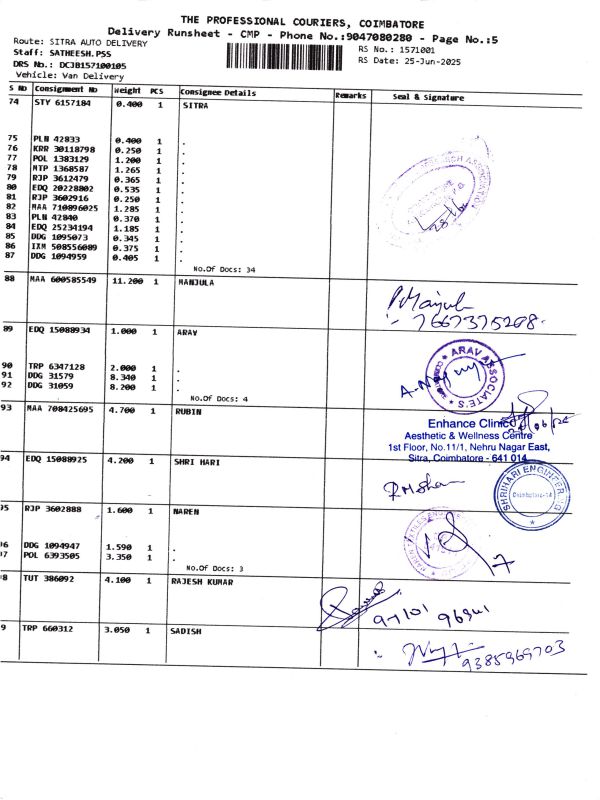 THE PROFESSIONAL COURIERS, COIMBATORE
Delivery Runsheet - CMP - Phone No.:9047080280 - Page No.:5
Route: SITRA AUTO DELIVERY
RS No.: 1571001
Staff: SATHEESH.PSS
RS Date: 25-Jun-2025
DRS No.: DCJB157100105
Vehicle: Van Delivery
S NO Consignment No Weight PCS Consignee Details Remarks Seal & Signature
74 STY 6157184 0.400 1 SITRA
75 PLN 42833 0.400 1 .
76 KRR 30118798 0.250 1 .
77 POL 1383129 1.200 1 .
78 MTP 1368587 1.265 1 .
79 RJP 3612479 0.365 1 .
80 EDQ 20228802 0.535 1 .
81 RJP 3602916 0.250 1 .
82 MAA 710896025 1.285 1 .
83 PLN 42840 0.370 1 .
84 EDQ 25234194 1.185 1 .
85 DDG 1095073 0.345 1 .
86 IXM 508556089 0.375 1 .
87 DDG 1094959 0.405 1 .
No.Of Docs: 34
88 MAA 600585549 11.200 1 MANJULA
89 EDQ 15088934 1.000 1 ARAV
ARAV ASSOCIATE'S
90 TRP 6347128 2.000 1 .
91 DDG 31579 8.340 1 .
92 DDG 31059 8.200 1 .
No.Of Docs: 4
93 MAA 708425695 4.700 1 RUBIN
Enhance Clinic
Aesthetic & Wellness Centre
1st Floor, No.11/1, Nehru Nagar East,
Sitra, Coimbatore - 641 014
94 EDQ 15088925 4.200 1 SHRI HARI
SHRIHARI ENGINEERING
Coimbatore-14
95 RJP 3602888 1.600 1 NAREN
96 DDG 1094947 1.590 1 .
97 POL 6393505 3.350 1 .
No.Of Docs: 3
98 TUT 386092 4.100 1 RAJESH KUMAR
99 TRP 660312 3.050 1 SADISH
9385969703